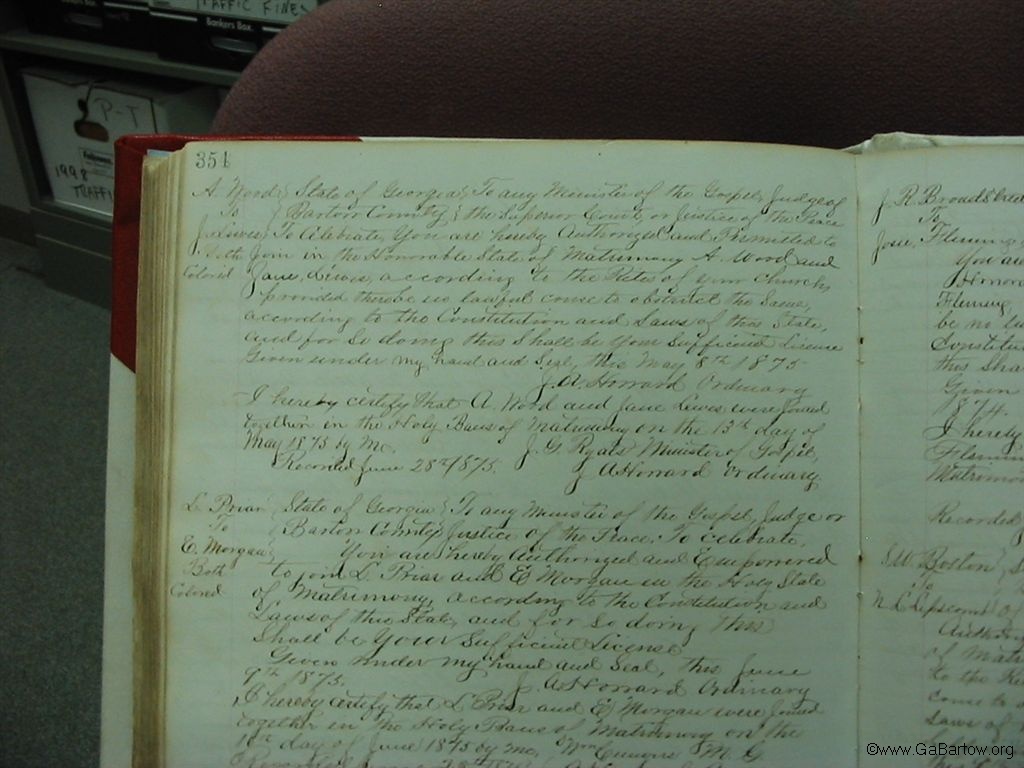 TRAFFIC FINES
Bankers Box
P-T
Fellowes
1998
TRAFFIC
354
A. Wood State of Georgia To any Minister of the Gospel, Judge of
To Bartow County the Superior Court or Justice of the Peace
J. Lewis To Celebrate, You are hereby Authorized and Permitted to
Both Join in the Honorable State of Matrimony A. Wood and
Colored Jane Lewis, according to the Rites of your Church,
provided there be no lawful cause to obstruct the Same,
according to the Constitution and Laws of this State,
and for So doing this Shall be Your Sufficient License
Given under my hand and Seal, this May 8th 1875
J. A. Howard Ordinary
I hereby certify that A. Wood and Jane Lewis were Joined
together in the Holy Bans of Matrimony on the 13th day of
May 1875 by Me, J. G. Ryals Minister of Gospel,
Recorded June 28th 1875. J. A. Howard Ordinary
L. Prior State of Georgia To any Minister of the Gospel, Judge or
To Bartow County Justice of the Peace, To celebrate,
E. Morgan You are hereby Authorized and Empowered
Both to join L. Prior and E. Morgan in the Holy State
Colored of Matrimony, according to the Constitution and
Laws of this State, and for So doing This
Shall be Your Sufficient License
Given under my hand and Seal, this June
9th 1875. J. A. Howard Ordinary
I hereby certify that L. Prior and E. Morgan were Joined
together in the Holy Bans of Matrimony on the
10th day of June 1875 by me, Wm M. G.
J. R.
To
Josie Fleming
You are
Fleming,
be no
Constitu
this Sha
Given
1874.
I hereby
Flemin
Matrimo
Recorded
S. W. Bolton
To
N. C. Lipscomb of
Author
of Matri
to the
Laws of
©www.GaBartow.org